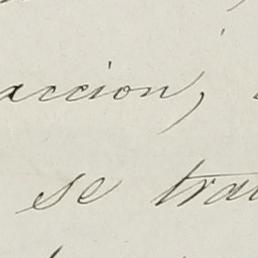 accion,
se tra